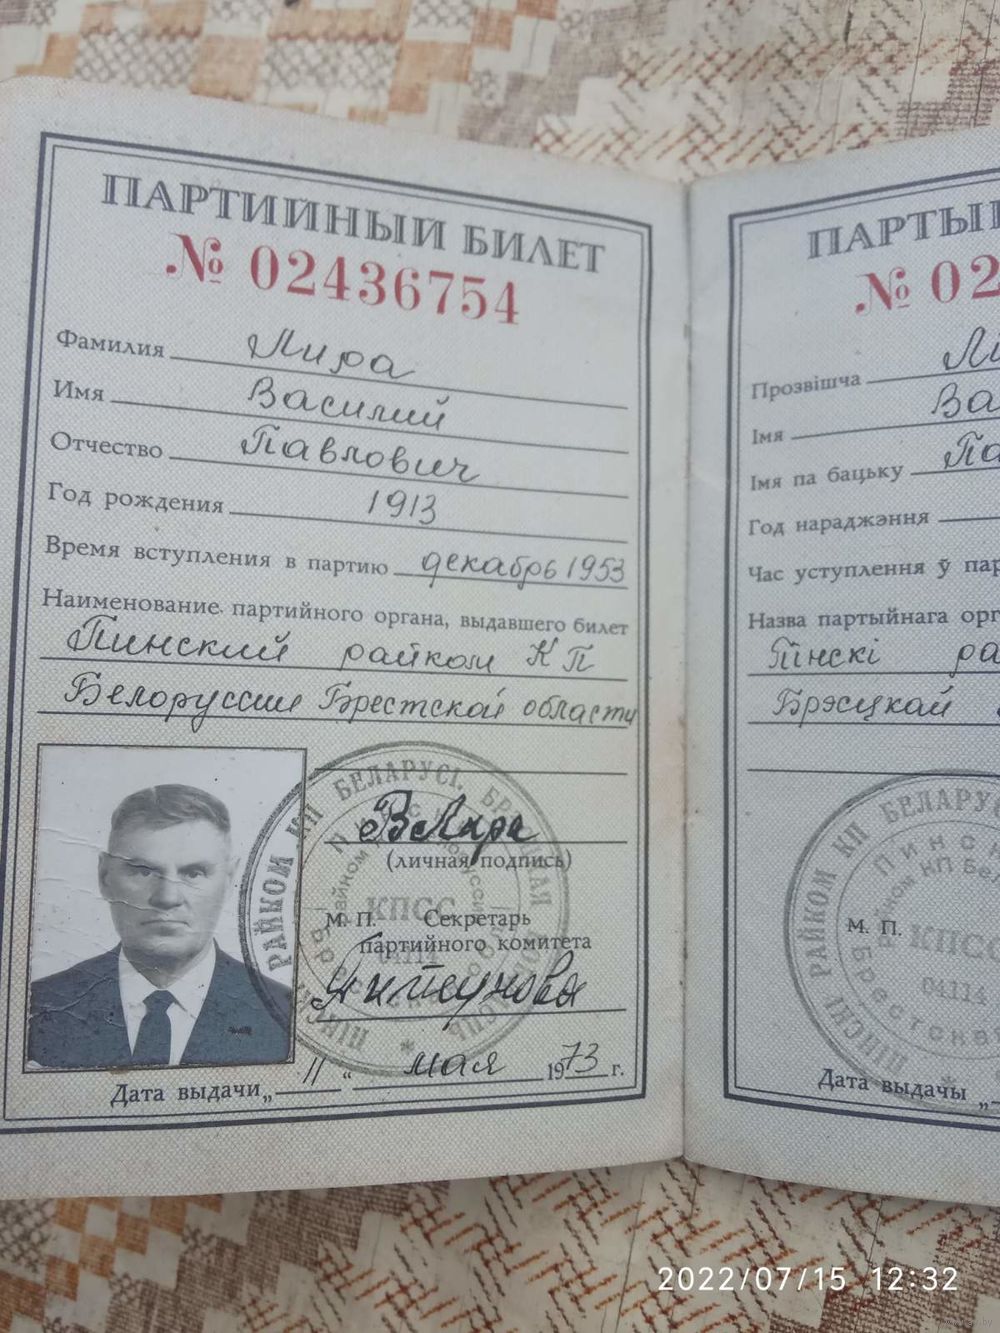 ПАРТИЙНЫЙ БИЛЕТ
№ 02436754
Фамилия Лира
Имя Василий
Отчество Павлович
Год рождения 1913
Время вступления в партию декабрь 1953
Наименование партийного органа, выдавшего билет
Пинский райком КП
Белоруссии Брестской области
ВЛира
(личная подпись)
М. П. Секретарь
партийного комитета
Дата выдачи „11“ мая 1973 г.
ПІНСКІ РАЙКОМ КП БЕЛАРУСІ
КПСС
04114
ПАРТЫ
№ 02
Прозвішча Лі
Імя Ва
Імя па бацьку Па
Год нараджэння
Час уступлення ў пар
Назва партыйнага орг
Пінскі ра
Брэсцкай
М. П.
ПІНСКІ РАЙКОМ КП БЕЛАРУ
КПСС
04114
Дата выдачы „
2022/07/15 12:32